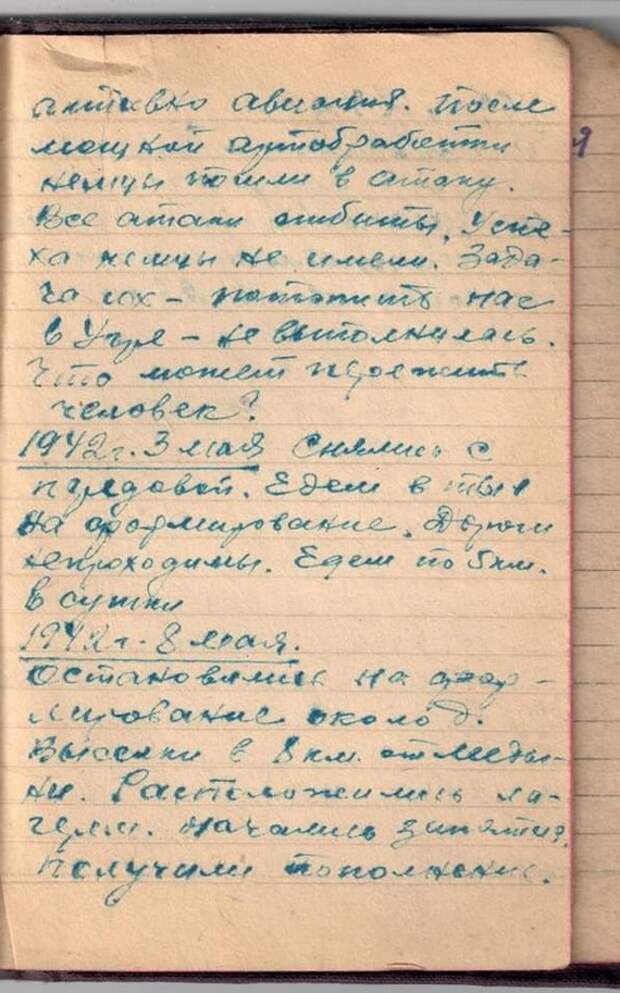 активно авиация. После
мощной артобработки
немцы пошли в атаку.
Все атаки отбиты. Успе-
ха немцы не имели. Зада-
ча их - потопить нас
в Угре - не выполнилась.
Что может пережить
человек?
1942 г. 3 мая Снялись с
передовой. Едем в тыл
на формирование. Дороги
непроходимы. Едем по 5 км.
в сутки
1942 г. 8 мая.
Остановились на фор-
мирование около д.
Высоки в 8 км. от Меды-
ни. Расположились ла-
герем. Начались занятия.
Получили пополнение.
я